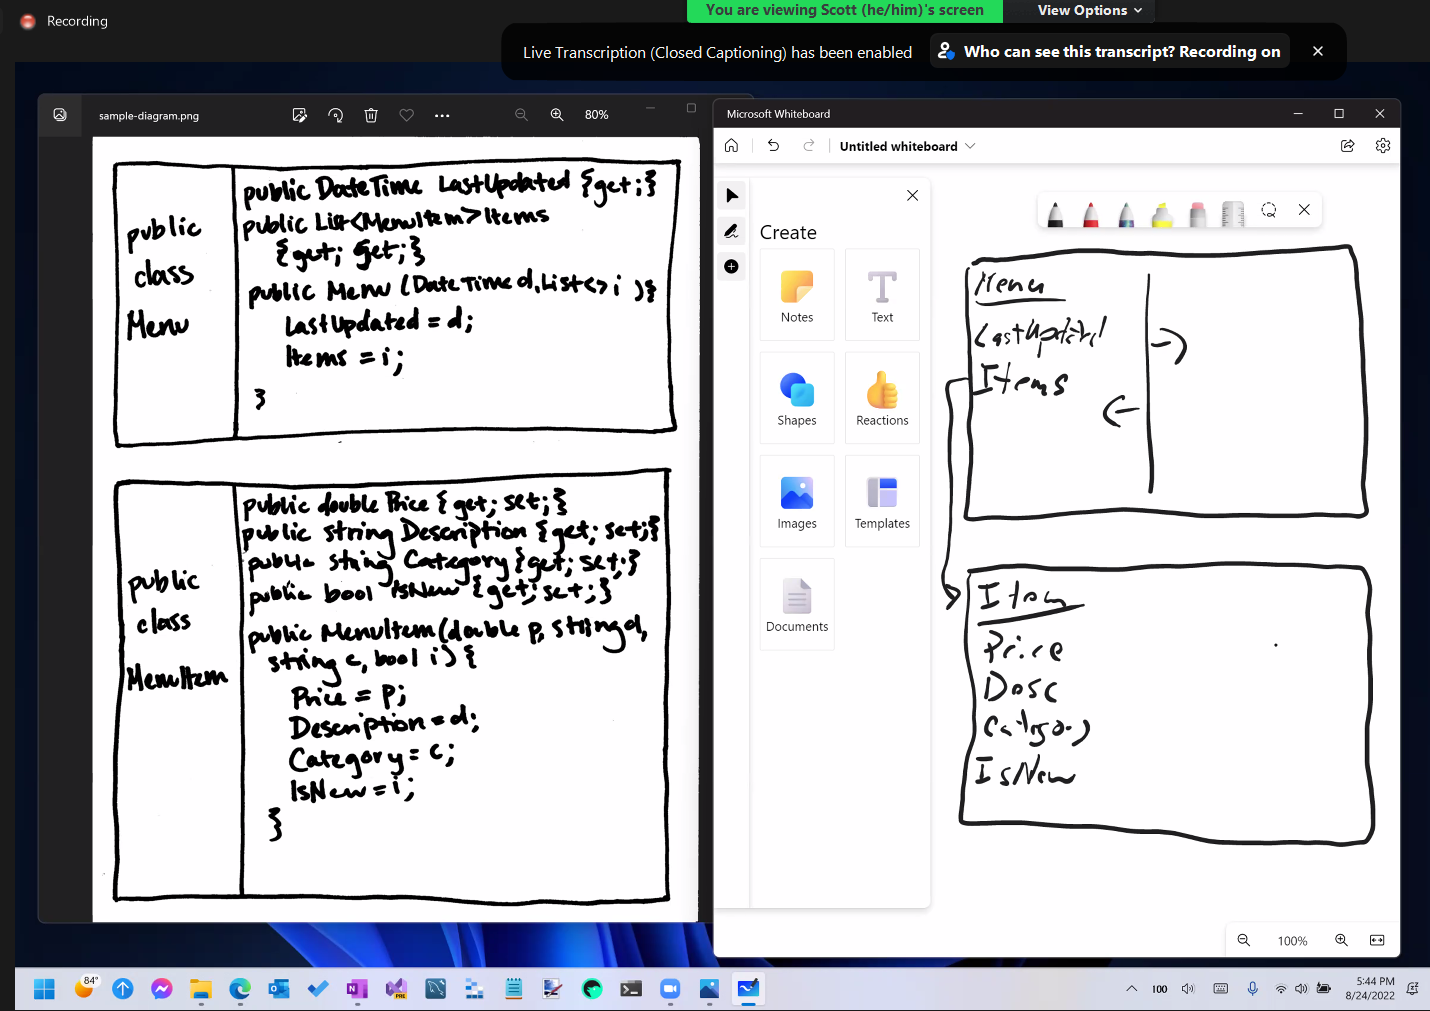 Recording
You are viewing Scott (he/him)'s screen
View Options
Live Transcription (Closed Captioning) has been enabled
Who can see this transcript? Recording on
sample-diagram.png
80%
public
class
Menu
public DateTime LastUpdated {get;}
public List<MenuItem> Items
{get; get;}
public Menu (DateTime d, List<> i ){
LastUpdated = d;
Items = i;
}
public
class
MenuItem
public double Price {get; set;}
public string Description {get; set;}
public string Category {get; set;}
public bool IsNew {get; set;}
public MenuItem(double p, string d,
string c, bool i) {
Price = p;
Description = d;
Category = c;
IsNew = i;
}
Microsoft Whiteboard
Untitled whiteboard
Create
Notes
Text
Shapes
Reactions
Images
Templates
Documents
Menu
LastUpdated
Items
Item
Price
Desc
Category
IsNew
100%
84°
PRE
100
5:44 PM
8/24/2022